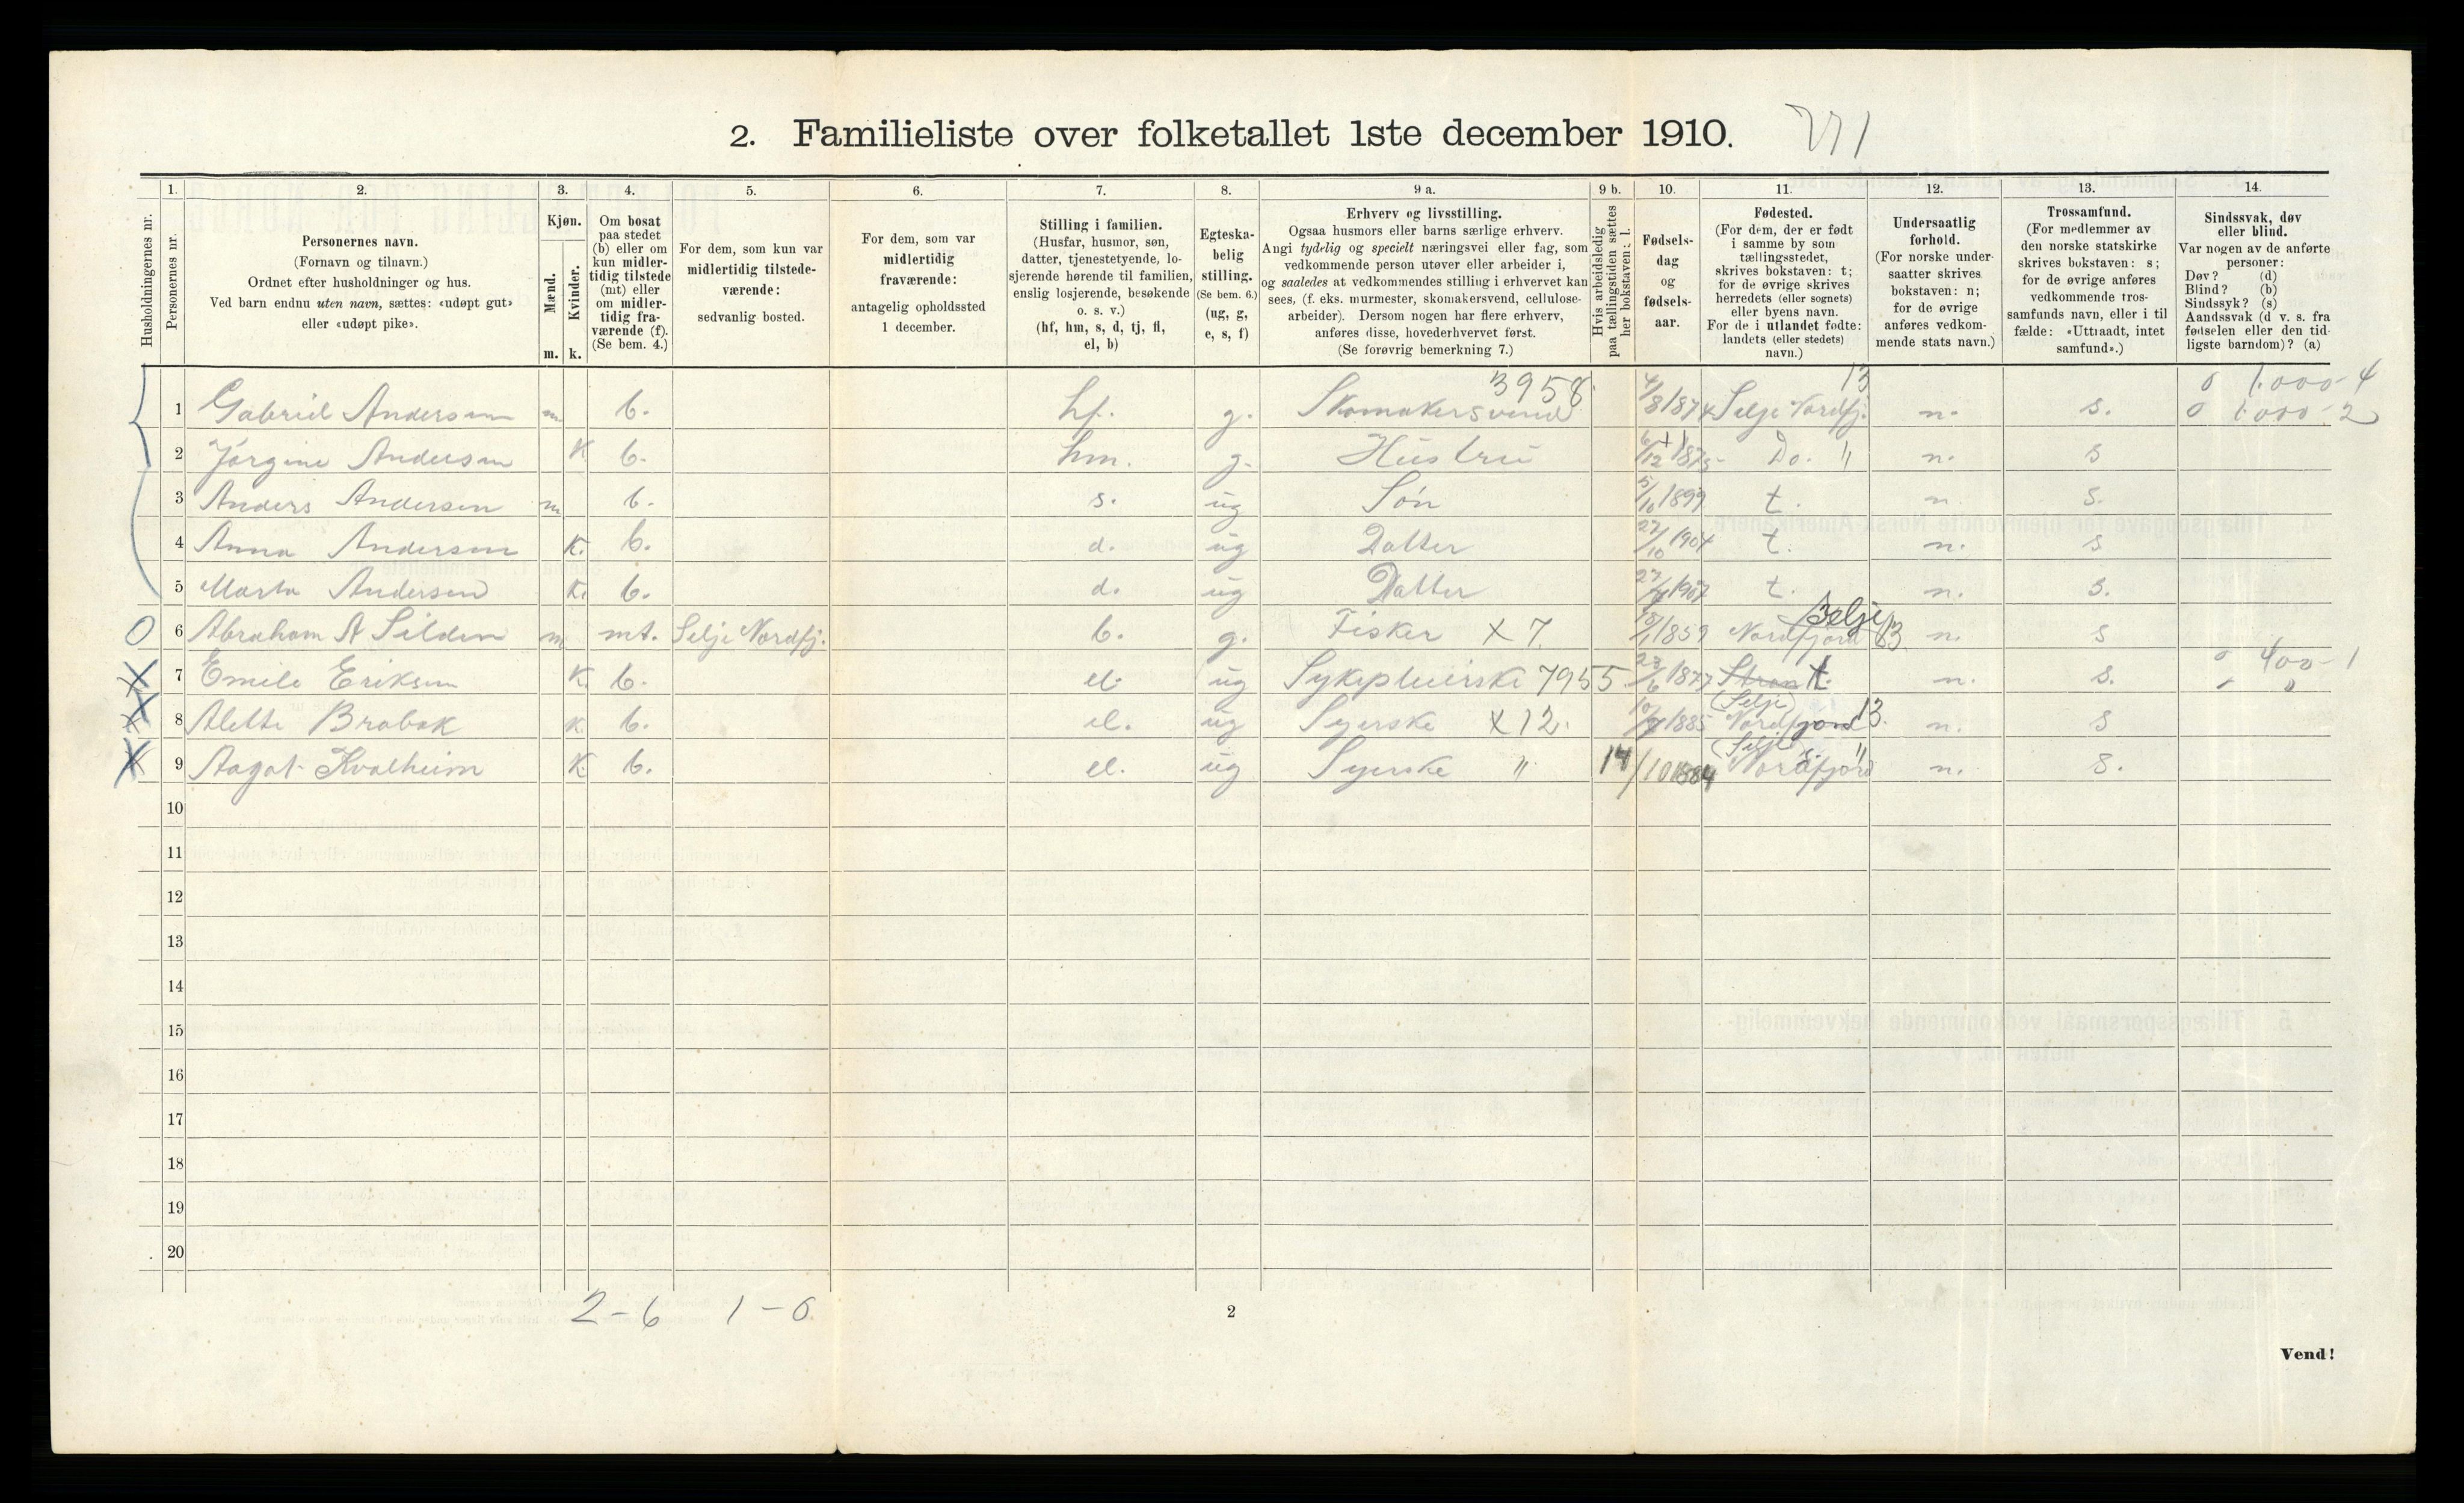 2. Familieliste over folketallet 1ste december 1910.
1. 2. 3. 4. 5. 6. 7. 8. 9 a. 9 b. 10. 11. 12. 13. 14.
Husholdningernes nr.
Personernes nr.
Personernes navn.
(Fornavn og tilnavn.)
Ordnet efter husholdninger og hus.
Ved barn endnu uten navn, sættes: «udøpt gut»
eller «udøpt pike».
Kjøn.
Mænd.
Kvinder.
m. k.
Om bosat
paa stedet
(b) eller om
kun midler-
tidig tilstede
(mt) eller
om midler-
tidig fra-
værende (f).
(Se bem. 4.)
For dem, som kun var
midlertidig tilstede-
værende:
sedvanlig bosted.
For dem, som var
midlertidig
fraværende:
antagelig opholdssted
1 december.
Stilling i familien.
(Husfar, husmor, søn,
datter, tjenestetyende, lo-
sjerende hørende til familien,
enslig losjerende, besøkende
o. s. v.)
(hf, hm, s, d, tj, fl,
el, b)
Egteska-
belig
stilling.
(Se bem. 6.)
(ug, g,
e, s, f)
Erhverv og livsstilling.
Ogsaa husmors eller barns særlige erhverv.
Angi tydelig og specielt næringsvei eller fag, som
vedkommende person utøver eller arbeider i,
og saaledes at vedkommendes stilling i erhvervet kan
sees, (f. eks. murmester, skomakersvend, cellulose-
arbeider). Dersom nogen har flere erhverv,
anføres disse, hovederhvervet først.
(Se forøvrig bemerkning 7.)
Hvis arbeidsledig
paa tællingstiden sættes
her bokstaven: l.
Fødsels-
dag
og
fødsels-
aar.
Fødested.
(For dem, der er født
i samme by som
tællingsstedet,
skrives bokstaven: t;
for de øvrige skrives
herredets (eller sognets)
eller byens navn.
For de i utlandet fødte:
landets (eller stedets)
navn.)
Undersaatlig
forhold.
(For norske under-
saatter skrives
bokstaven: n;
for de øvrige
anføres vedkom-
mende stats navn.)
Trossamfund.
(For medlemmer av
den norske statskirke
skrives bokstaven: s;
for de øvrige anføres
vedkommende tros-
samfunds navn, eller i til
fælde: «Uttraadt, intet
samfund».)
Sindssvak, døv
eller blind.
Var nogen av de anførte
personer:
Døv? (d)
Blind? (b)
Sindssyk? (s)
Aandssvak (d v. s. fra
fødselen eller den tid-
ligste barndom)? (a)
3958 13 0 1.000-4
1 Gabriel Andersen m b. hf. g. Skomakersvend 4/8 1874 Selje Nordfj. n. s. 0 1.000-2
2 Jörgine Andersen K b. hm. g. Hustru 6/12 1875 Do. " n. s
3 Anders Andersen m b. s. ug Søn 5/10 1899 t. n. s.
4 Anna Andersen K. b. d. ug Datter 27/10 1904 t. n. s
5 Marta Andersen K. b. d. ug Datter 1907 t. n. s.
Selje
6 Abraham A Silden m mt. Selje Nordfj. b. g. Fisker X 7. 1859 Nordfjord 13 n. s
7 Emile Eriksen K. b. el. ug Sykepleierske 7955 23/6 1877 t. n. s. 0 400-1
(Selje)
8 Alette Brobak K. b. el. ug Syerske X 12. 1885 Nordfjord 13. n. s
(Selje)
9 Aagot Kvalheim K b. el. ug Syerske " 14/10 1884 Nordfjord " n. s.
10
11
12
13
14
15
16
17
18
19
20
2-6 1-0
2
Vend!